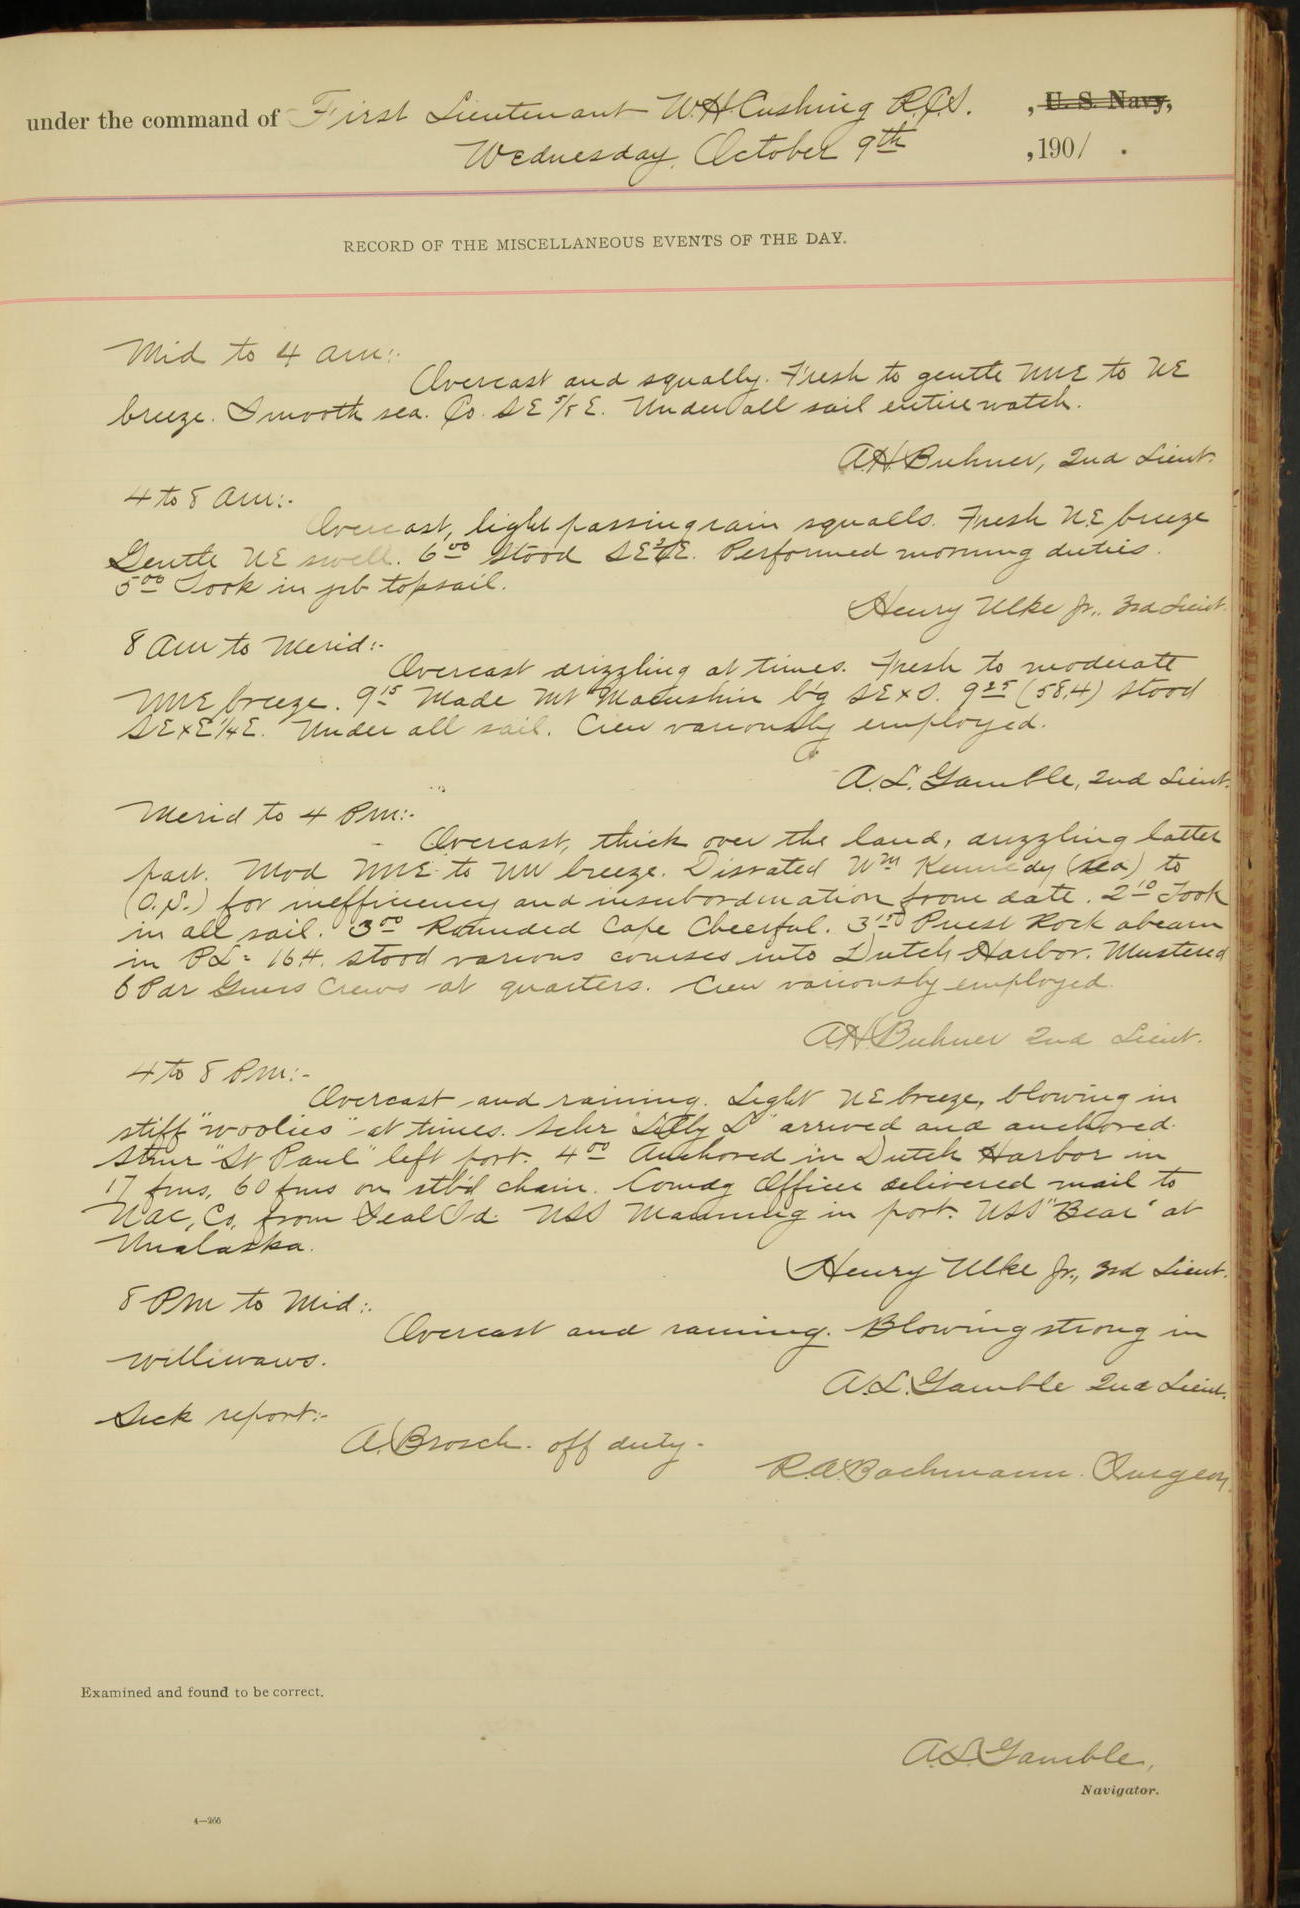 under the command of First Lieutenant W.H. Cushing R.C.S. , U. S. Navy,
Wednesday, October 9th , 1901 .
RECORD OF THE MISCELLANEOUS EVENTS OF THE DAY.
Mid to 4 am:-
Overcast and squally. Fresh to gentle NNE to NE
breeze. Smooth sea. Co. SE 5/8 E. Under all sail entire watch.
A.H. Buhner, 2nd Lieut.
4 to 8 am:-
Overcast, light passing rain squalls. Fresh N.E. breeze
Gentle NE swell. 6 00 Stood Performed morning duties.
5 00 Took in jib topsail.
Henry Ulke Jr., 3rd Lieut.
8 am to Merid:-
Overcast drizzling at times. Fresh to moderate
NNE breeze. 9 15 Made Mt Macushin bg SExS. 9 25 (58.4) stood
SExE 1/4 E. Under all sail. Crew variously employed.
A.L. Gamble, 2nd Lieut.
Merid to 4 Pm:-
Overcast, thick over the land, drizzling latter
part. Mod NNE to NW breeze. Disrated Wm Kennedy (sea) to
(O.S.) for inefficiency and insubordination from date. 2 10 Took
in all sail. 3 00 Rounded Cape Cheerful. 3 50 Priest Rock abeam
in PL = 16.4. stood various courses into Dutch Harbor. Mustered
6 Pdr Guns Crews at quarters. Crew variously employed.
A.H. Buhner 2nd Lieut.
4 to 8 Pm:-
Overcast and raining. Light NE breeze, blowing in
stiff "woolies" at times. Schr "Lilly L" arrived and anchored.
Stmr "St Paul" left port. 4 00 Anchored in Dutch Harbor in
17 fms, 60 fms on stb'd chain. Comdg Officer delivered mail to
NAC, Co. from Seal Isd. USS Manning in port. USS "Bear" at
Unalaska.
Henry Ulke Jr., 3rd Lieut.
8 PM to Mid:-
Overcast and raining. Blowing strong in
williwaws.
A.L. Gamble 2nd Lieut.
Sick report:-
A. Brosch. off duty.
R.A. Bachmann. Surgeon.
Examined and found to be correct.
A.L. Gamble,
Navigator.
4—266